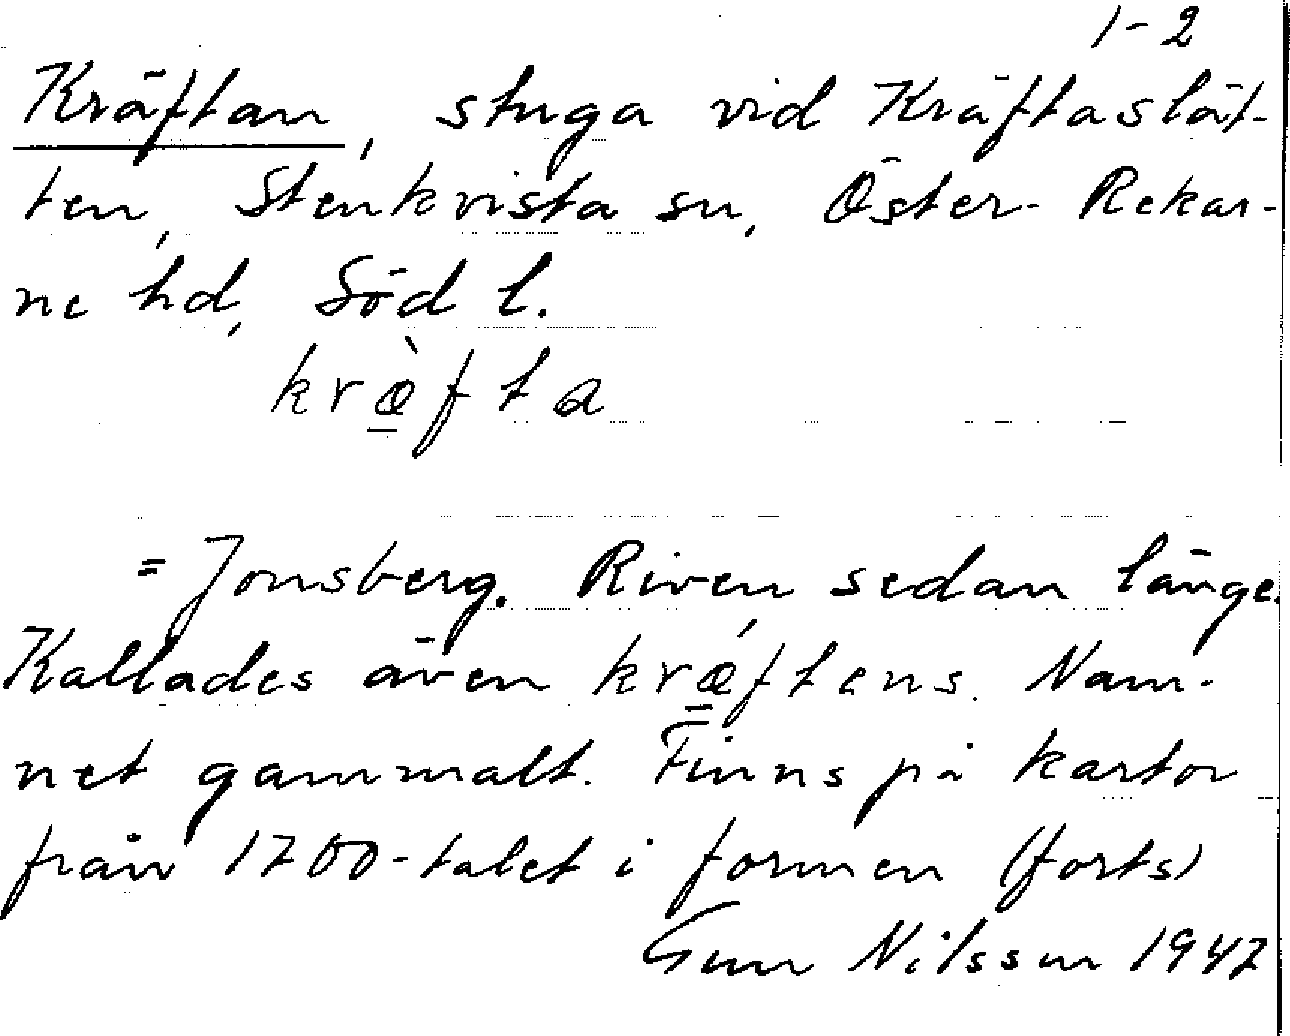 1-2
Kräftan, stuga vid Kräftaslät-
ten, Stenkvista sn, Öster-Rekar-
ne hd, Söd l.
kræ̀fta
= Jonsberg. Riven sedan länge.
Kallades även krǽftens. Nam-
net gammalt. Finns på kartor
från 1700-talet i formen (forts)
Gun Nilsson 1947